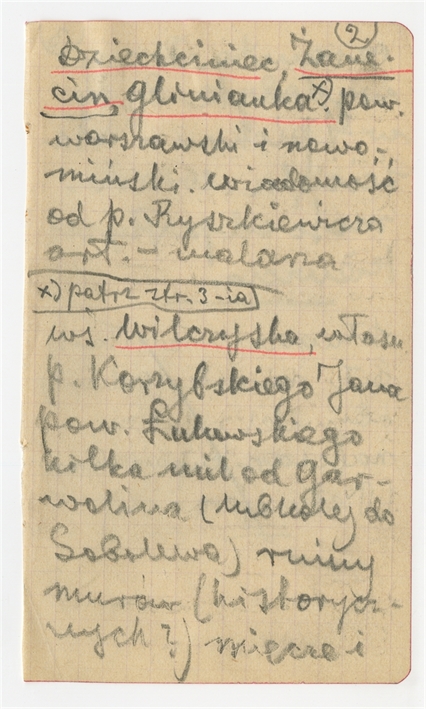 2
Dziechciniec, Żane-
cin, Glinianka x). pow.
warszawski i nowo-
miński. wiadomość
od p. Ryszkiewicza
art. - malarza
x) patrz str. 3-ia
wś. Wilczyska, własn
p. Korzybskiego Jana
pow. Łukowskiego
kilka mil od Gar-
wolina (lub kolej do
Sobolewa) ruiny
murów (historycz-
nych?) więcie i